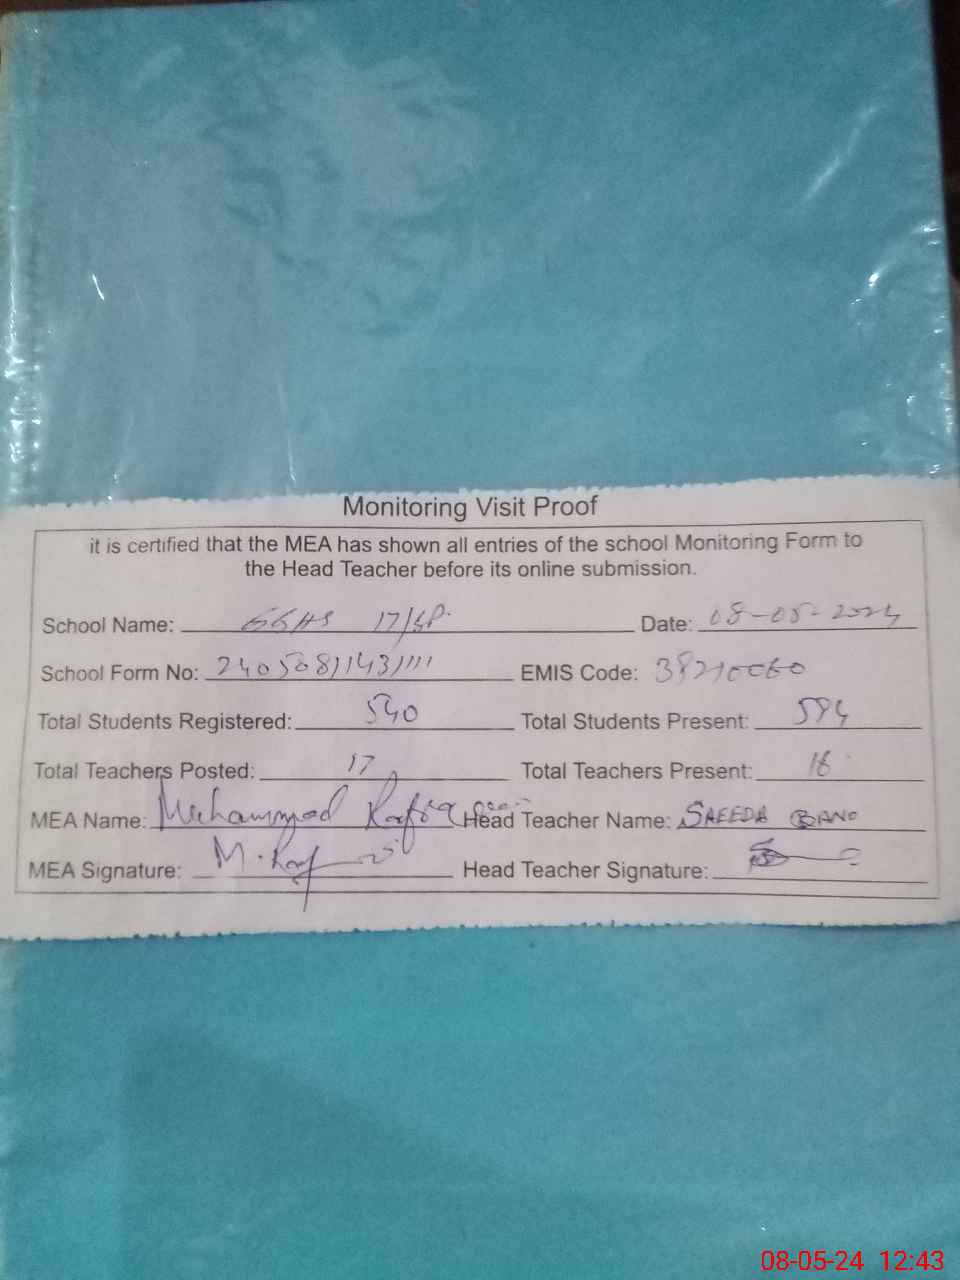 Monitoring Visit Proof
it is certified that the MEA has shown all entries of the school Monitoring Form to
the Head Teacher before its online submission.
School Name: GGHS 17/SP. Date: 08-05-2024
School Form No: 24050811431111 EMIS Code: 38210060
Total Students Registered: 540 Total Students Present:
Total Teachers Posted: 17 Total Teachers Present: 16
MEA Name: Muhammad Rafiq Head Teacher Name: SAEEDA BANO
MEA Signature: Head Teacher Signature:
08-05-24 12:43